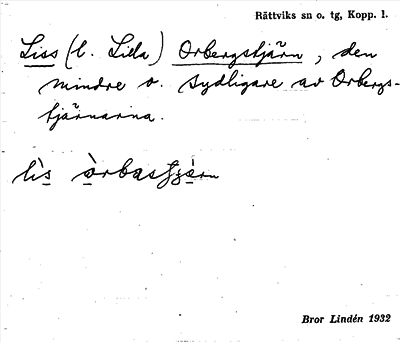 Rättviks sn o. tg, Kopp. l.
Liss (l. Lilla) Orbergstjärn, den
mindre o. sydligare av Orbergs-
tjärnarna.
Bror Lindén 1932